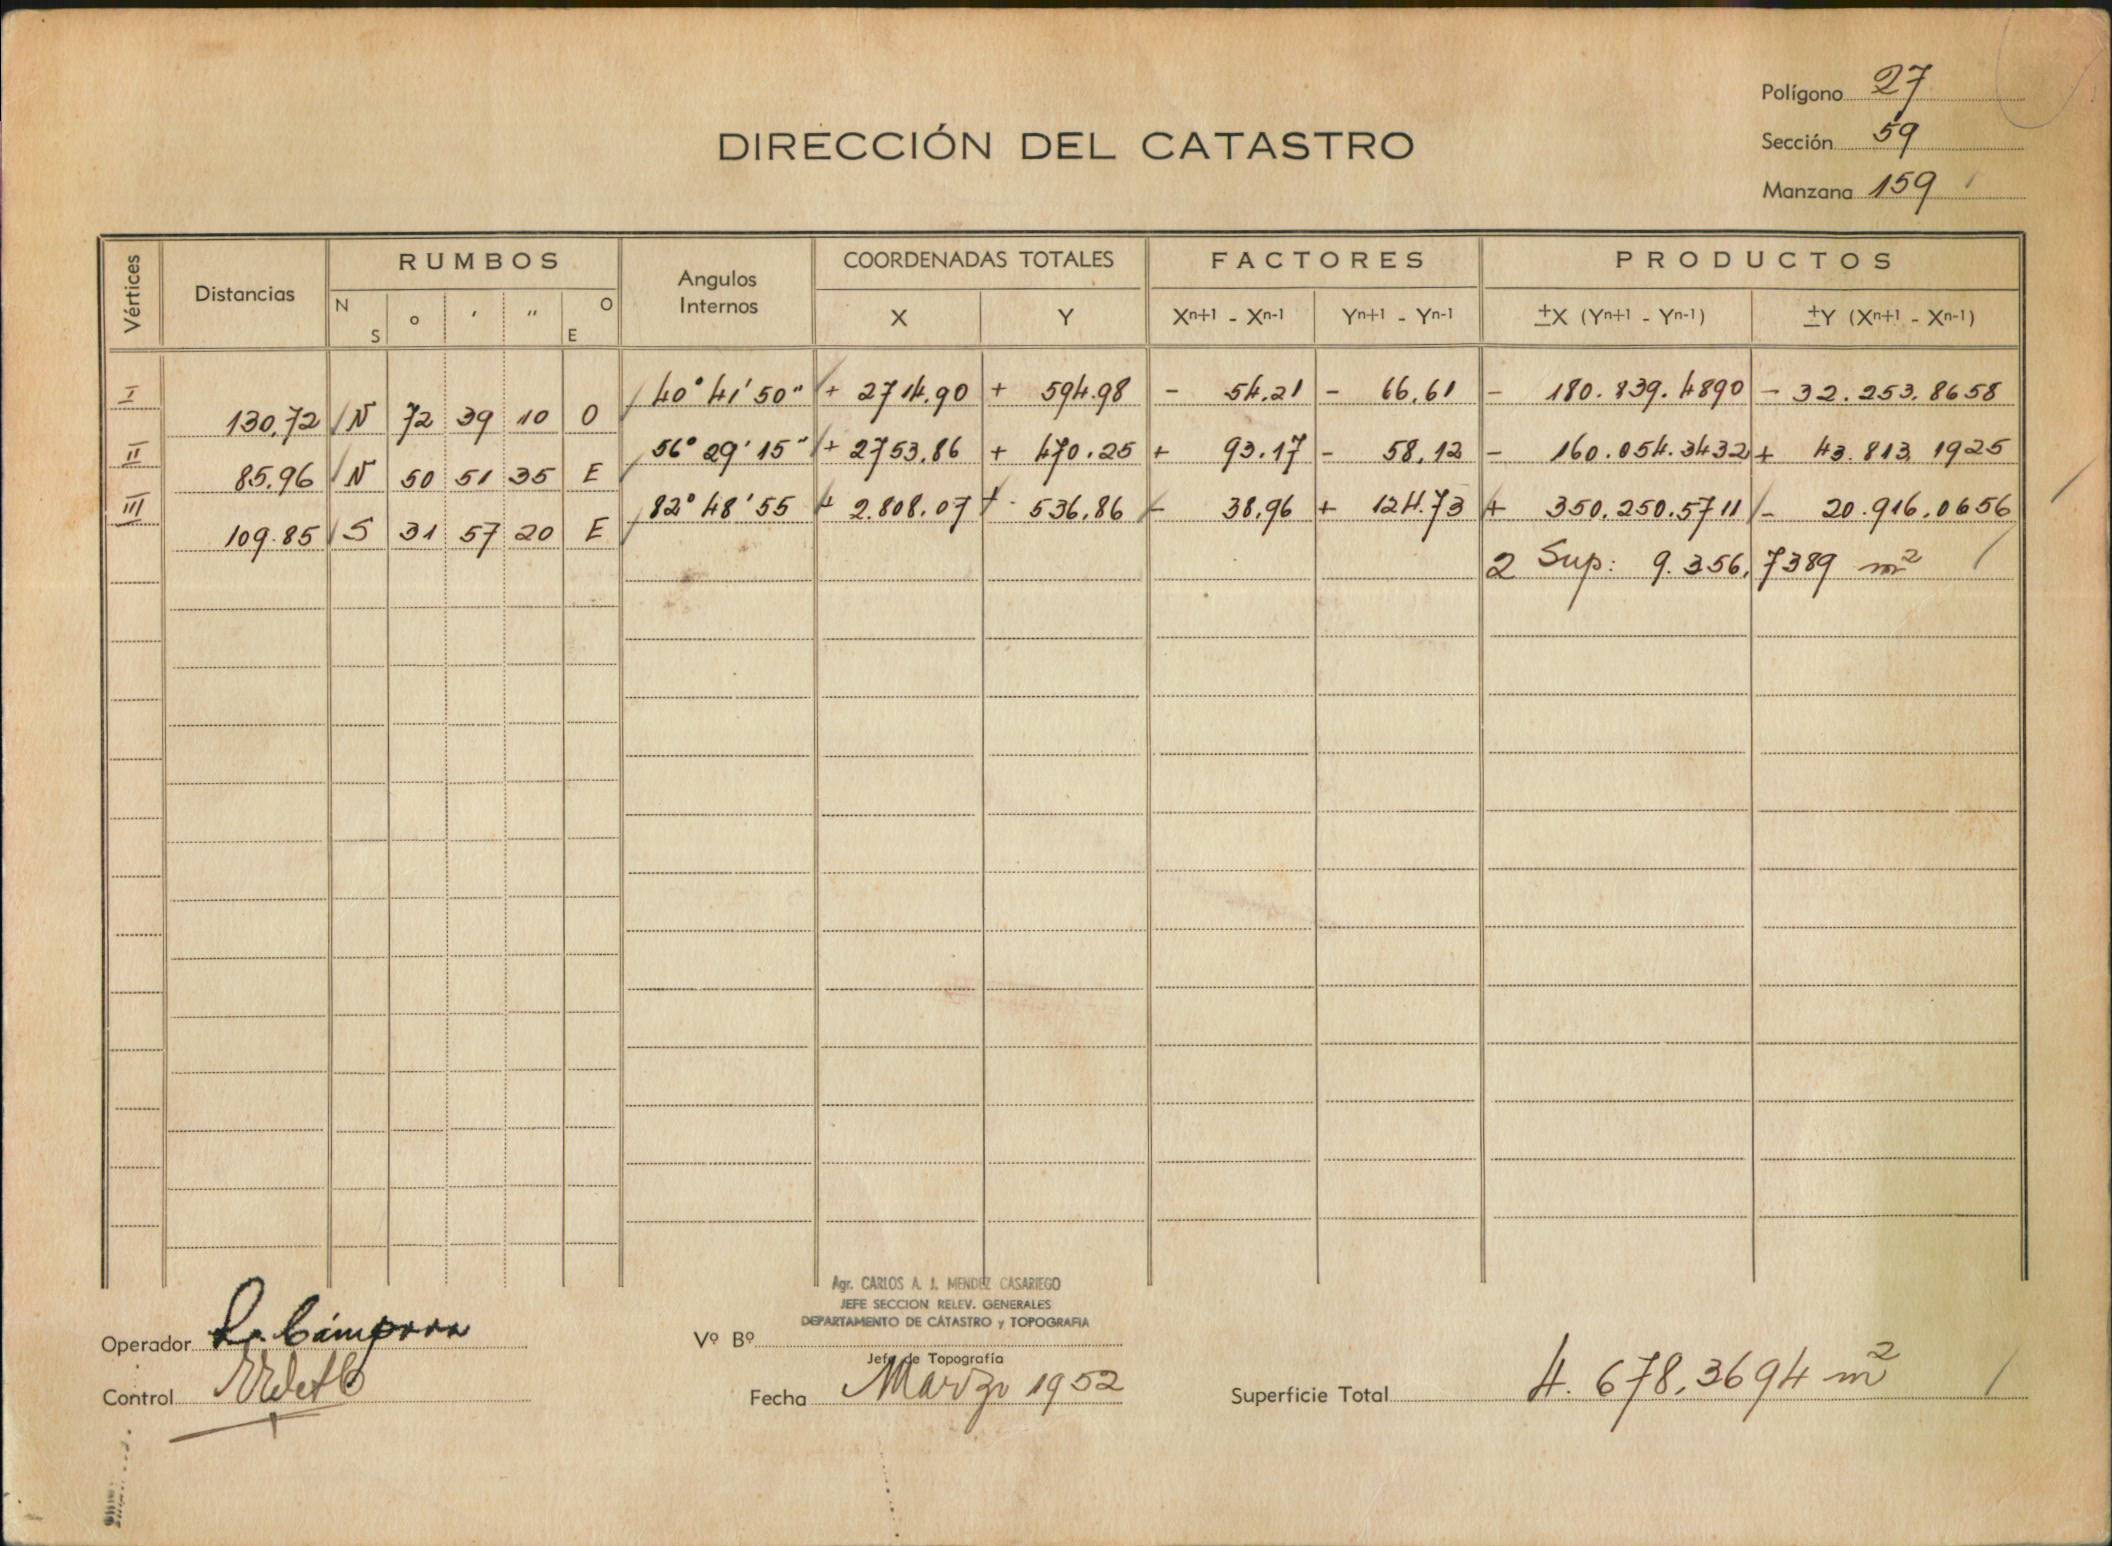 Polígono 27
DIRECCIÓN DEL CATASTRO
Sección 59
Manzana 159
Vértices Distancias RUMBOS Angulos Internos COORDENADAS TOTALES FACTORES PRODUCTOS
N S o ' " O E X Y Xn+1 - Xn-1 Yn+1 - Yn-1 ±X (Yn+1 - Yn-1) ±Y (Xn+1 - Xn-1)
I 40° 41' 50" + 2714.90 + 594.98 - 54,21 - 66,61 - 180.839.4890 - 32.253.8658
130,72 N 72 39 10 O
II 56° 29' 15" + 2753,86 + 470.25 + 93.17 - 58,12 - 160.054.3432 + 43.813.1925
85,96 N 50 51 35 E
III 82° 48' 55 + 2.808.07 + 536,86 - 38,96 + 124.73 + 350.250.5711 - 20.916.0656
109.85 S 31 57 20 E
2 Sup: 9.356,7389 m²
Agr. CARLOS A. J. MENDEZ CASARIEGO
JEFE SECCION RELEV. GENERALES
DEPARTAMENTO DE CATASTRO y TOPOGRAFIA
Operador
Vº Bº
Jefe de Topografía
Control
Fecha Marzo 1952
Superficie Total 4.678,3694 m²